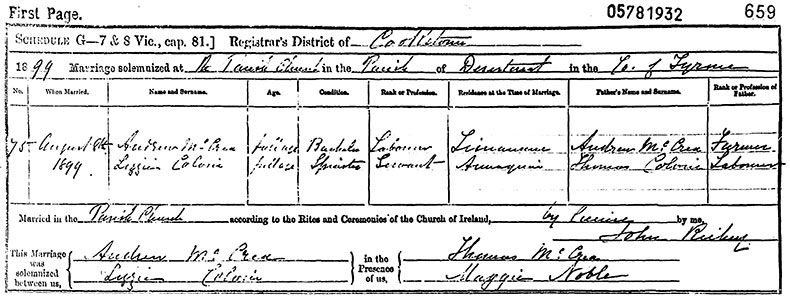 First Page. 05781932 659
SCHEDULE G—7 & 8 Vic., cap. 81.] Registrar's District of Cookstown
1899 Marriage solemnized at the Parish Church in the Parish of Desertcreat in the Co. of Tyrone
No. When Married. Name and Surname. Age. Condition. Rank or Profession. Residence at the Time of Marriage. Father's Name and Surname. Rank or Profession of Father.
75 August 8th 1899. Andrew McCrea full age Bachelor Labourer Andrew McCrea Farmer
Lizzie full age Spinster Servant Thomas Labourer
Married in the Parish Church according to the Rites and Ceremonies of the Church of Ireland, by Licence by me,
John
This Marriage was solemnized between us, Andrew McCrea in the Presence of us, Thomas McCrea
Lizzie Maggie Noble